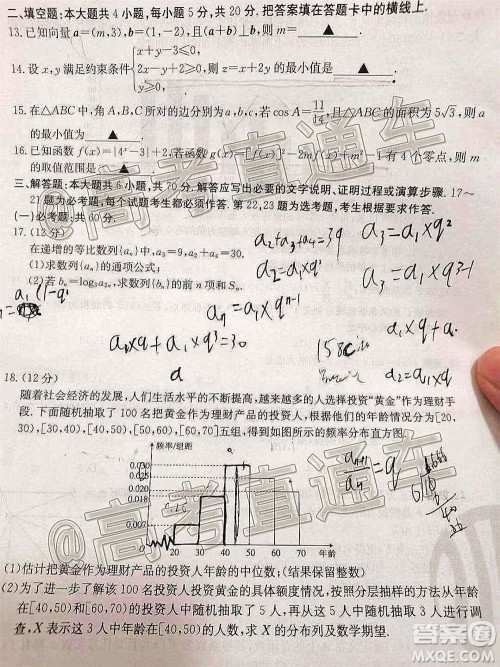 二、填空题:本大题共4小题,每小题5分,共20分.把答案填在答题卡中的横线上.
13.已知向量a=(m,3),b=(1,-2),且(a+b)⊥b,则m=▲.
14.设x,y满足约束条件{x+y-3≤0, 2x-y+2≥0, y≥0,则z=x+2y的最小值为▲.
15.在△ABC中,角A,B,C所对的边分别为a,b,c,若cosA=11/14,且△ABC的面积为5√3,则a
的最小值为▲.
16.已知函数f(x)=|4^x-3|+2,若函数g(x)=[f(x)]²-2mf(x)+m²-1有4个零点,则m
的取值范围是▲.
三、解答题:本大题共6小题,共70分.解答应写出必要的文字说明、证明过程或演算步骤.17~
21题为必考题,每个试题考生都必须作答.第22,23题为选考题,考生根据要求作答.
(一)必考题:共60分.
17.(12分)
在递增的等比数列{aₙ}中,a₃=9,a₂+a₄=30.
(1)求数列{aₙ}的通项公式;
(2)若bₙ=log₃a₂ₙ,求数列{bₙ}的前n项和Sₙ.
a₂+a₃+a₄=39
a₃=a₁×q²
a₂=a₁×q
aₙ=a₁×q^(n-1)
a₁×q+a₁×q³=30
18.(12分)
随着社会经济的发展,人们生活水平的不断提高,越来越多的人选择投资“黄金”作为理财手
段.下面随机抽取了100名把黄金作为理财产品的投资人,根据他们的年龄情况分为[20,
30),[30,40),[40,50),[50,60),[60,70]五组,得到如图所示的频率分布直方图.
频率/组距
0.030
0.027
0.018
0.007
0 20 30 40 50 60 70 年龄
aₙ₊₁/aₙ=q
(1)估计把黄金作为理财产品的投资人年龄的中位数;(结果保留整数)
(2)为了进一步了解该100名投资人投资黄金的具体额度情况,按照分层抽样的方法从年龄
在[40,50)和[60,70]的投资人中随机抽取了5人,再从这5人中随机抽取3人进行调
查,X表示这3人中年龄在[40,50)的人数,求X的分布列及数学期望.
@高考直通车
@高考直通车
作业帮
MXQE.COM